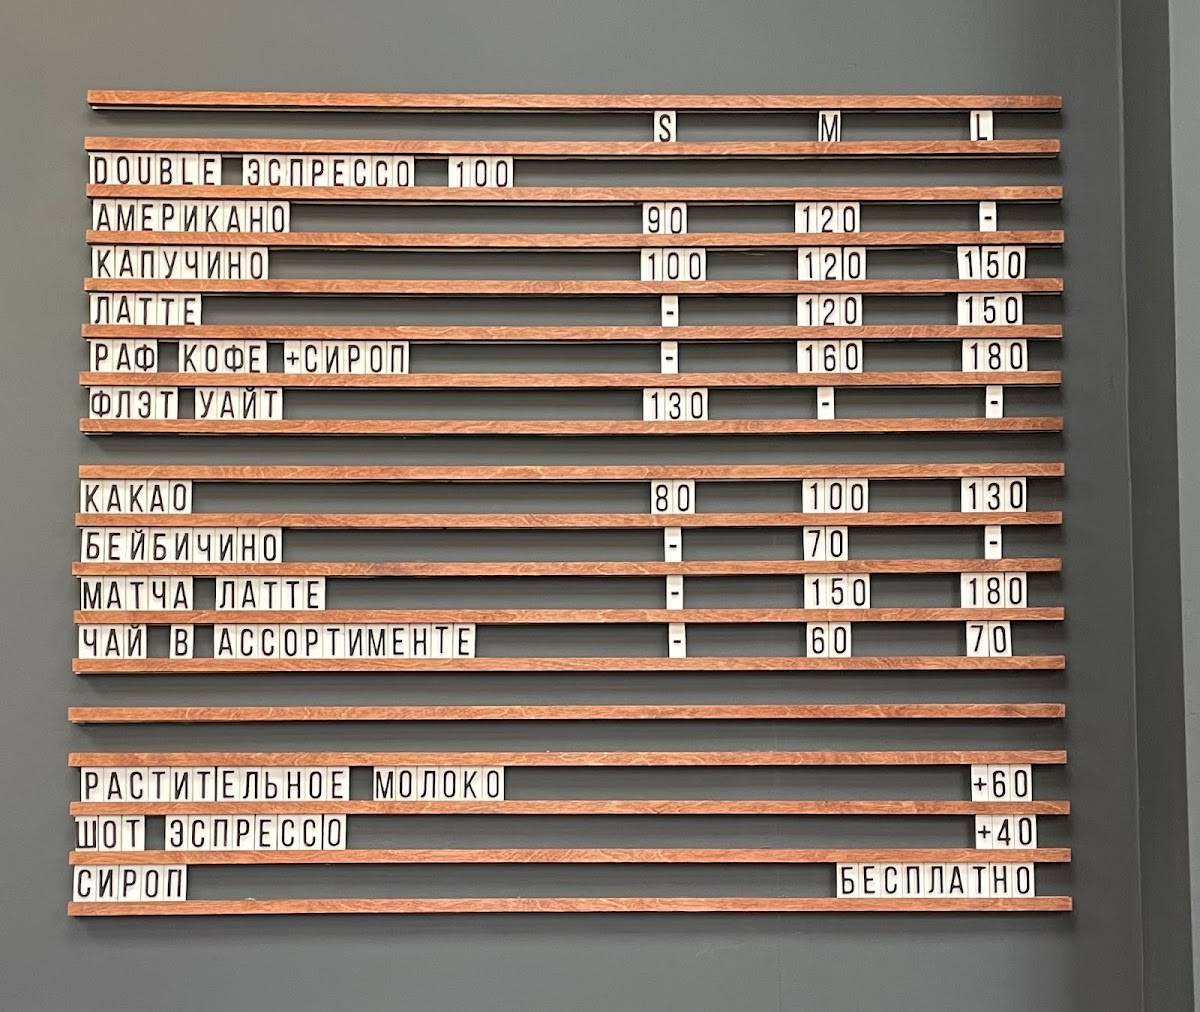 S M L
DOUBLE ЭСПРЕССО 100
АМЕРИКАНО 90 120 -
КАПУЧИНО 100 120 150
ЛАТТЕ - 120 150
РАФ КОФЕ +СИРОП - 160 180
ФЛЭТ УАЙТ 130 - -
КАКАО 80 100 130
БЕЙБИЧИНО - 70 -
МАТЧА ЛАТТЕ - 150 180
ЧАЙ В АССОРТИМЕНТЕ - 60 70
РАСТИТЕЛЬНОЕ МОЛОКО +60
ШОТ ЭСПРЕССО +40
СИРОП БЕСПЛАТНО